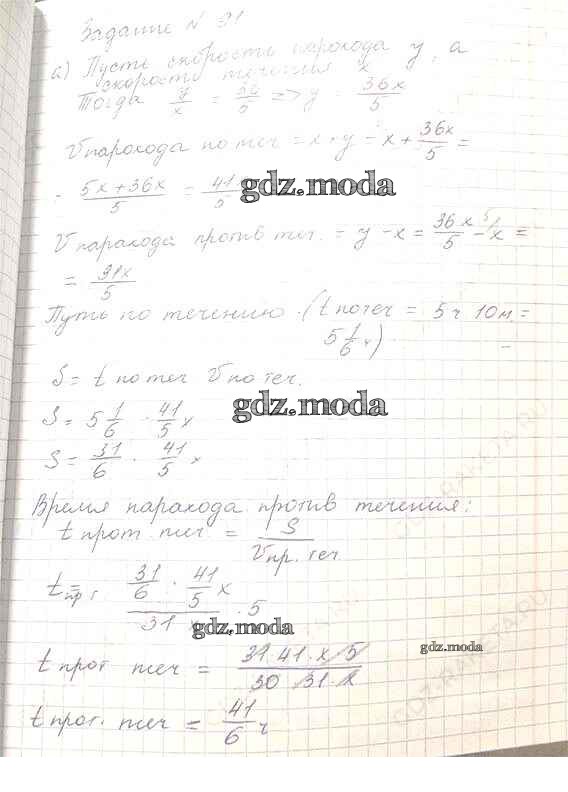 Задание № 31
а) Пусть скорость парохода y, а
скорость течения x
Тогда y/x = 36/5 => y = 36x/5
V парохода по теч = x + y = x + 36x/5 =
= 5x+36x/5 = 41
gdz.moda
V парахода против теч. = y - x = 36x/5 - x =
= 31x/5
Путь по течению (t по теч = 5ч 10м =
5 1/6 ч)
S = t по теч V по теч.
S = 5 1/6 · 41/5 x
gdz.moda
S = 31/6 · 41/5 x
GDZ.RAKETA.RU
Время парахода против течения:
t прот теч = S/V пр. теч
t пр т = 31/6 · 41/5 x / 31 x · 5
gdz.moda
t прот теч = 31·41·x·5/30·31·x
gdz.moda
GDZ.RAKETA.RU
t прот. теч = 41/6 ч